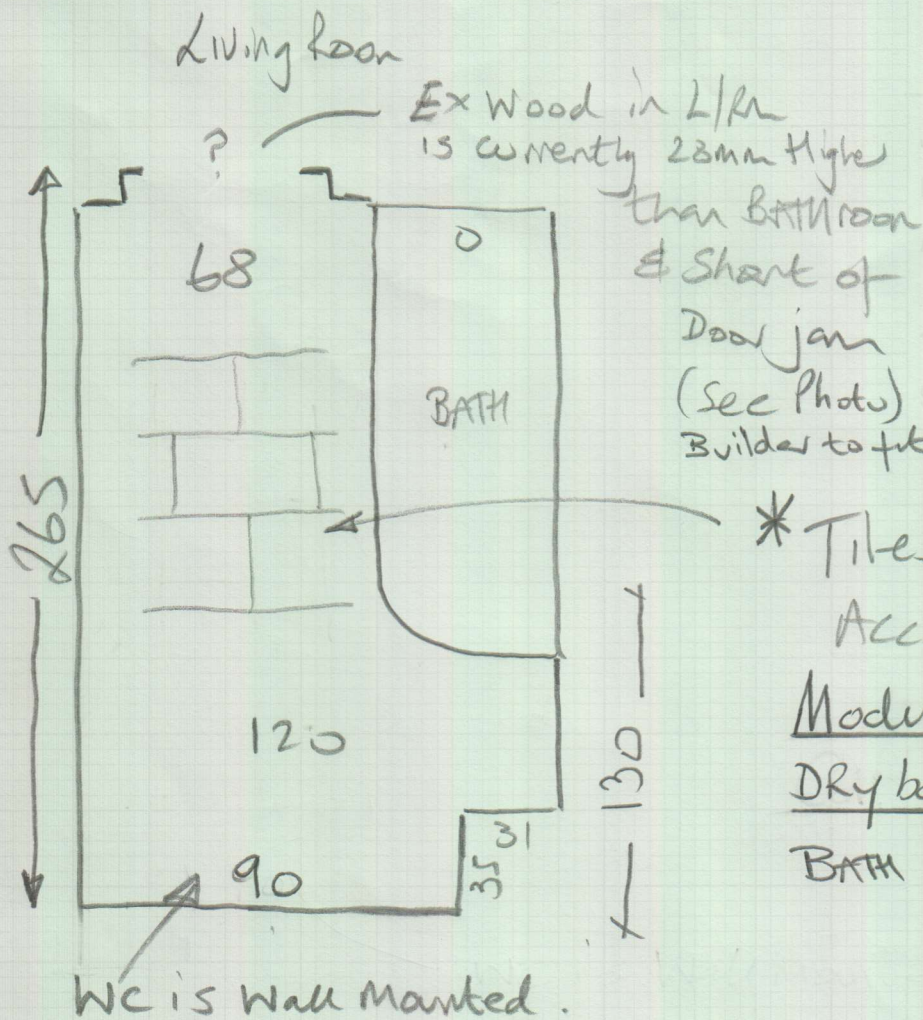 Living Room
Ex Wood in L/Rm
?
is currently 23mm Highe
than BATHroom
& Short of
Door jam
(See Photo)
Builder to fit
68
0
BATH
265
* Tiles
Acc
Modu
DRy ba
BATH
120
130
31
35
90
WC is Wall Mounted.